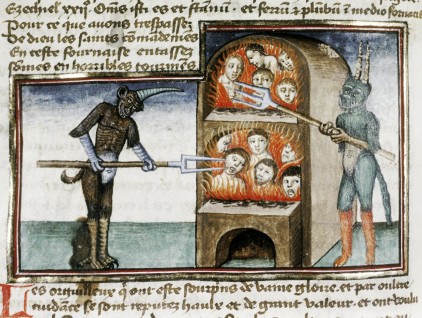 Ezechiel xxij Om̃s isti es et stanũ et ferrũ ⁊ plũbũ ĩ medio fornacis
Pour ce que auons trespassez
De dieu les sains cõmãdemẽs
En ceste fournaise entassez
Sõmes en horribles tourmẽs
Les orguilleux q̃ ont este sourprins de vaine gloire et par oultre
cuidãce se sont reputez haulx et de grant valeur et ont voulu